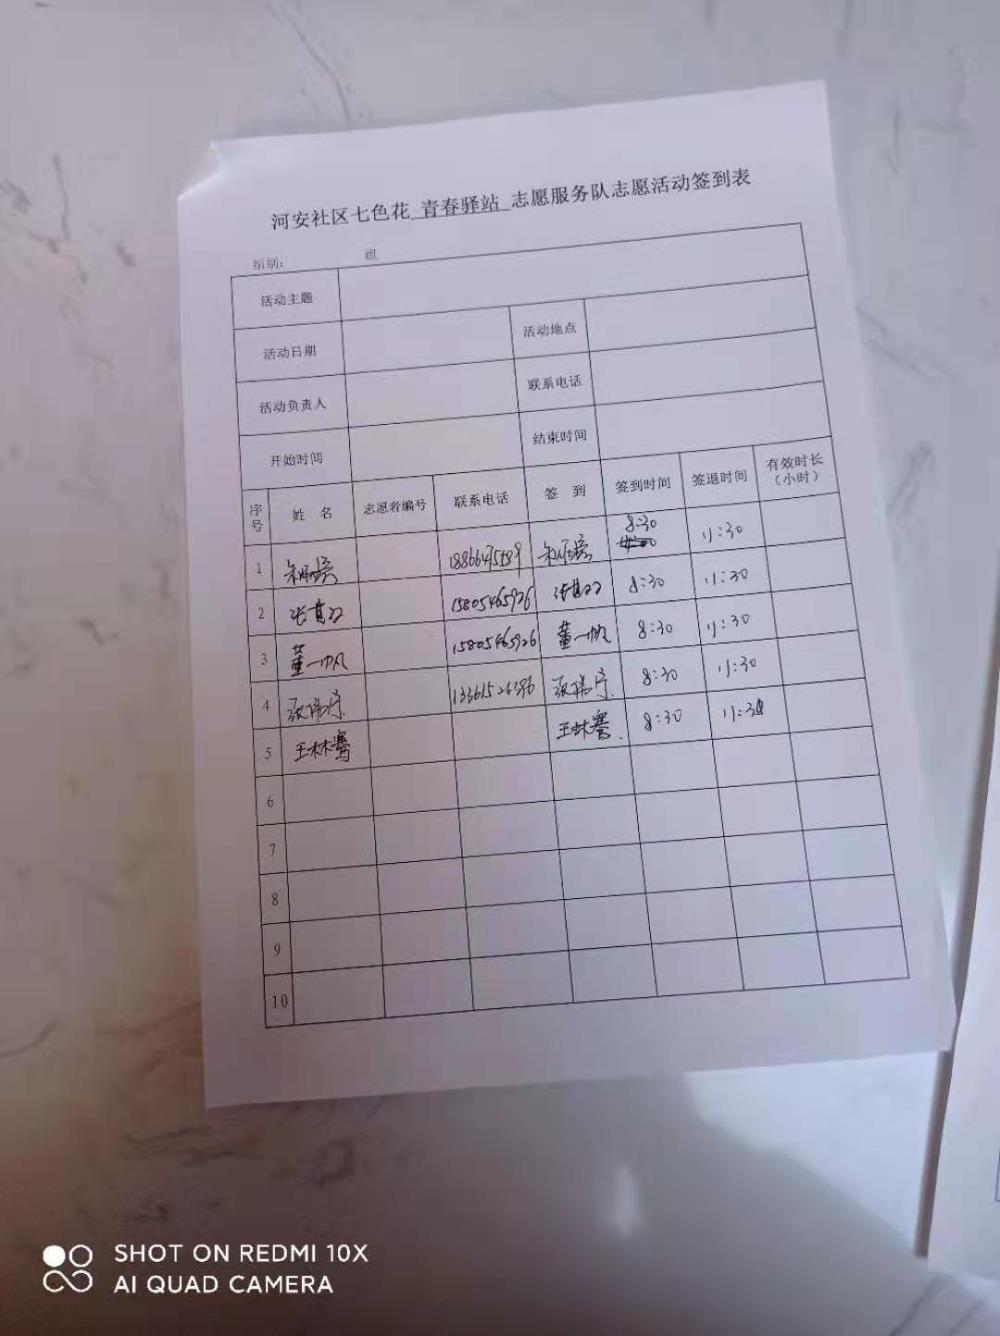 河安社区七色花 青春驿站 志愿服务队志愿活动签到表
组别: 组
活动主题
活动日期 活动地点
活动负责人 联系电话
开始时间 结束时间
序号 姓名 志愿者编号 联系电话 签到 签到时间 签退时间 有效时长（小时）
1 8:30 11:30
2 15805465926 8:30 11:30
3 董一帆 15805465926 董一帆 8:30 11:30
4 13361526396 8:30 11:30
5 王林骞 王林骞 8:30 11:30
6
7
8
9
10
SHOT ON REDMI 10X
AI QUAD CAMERA